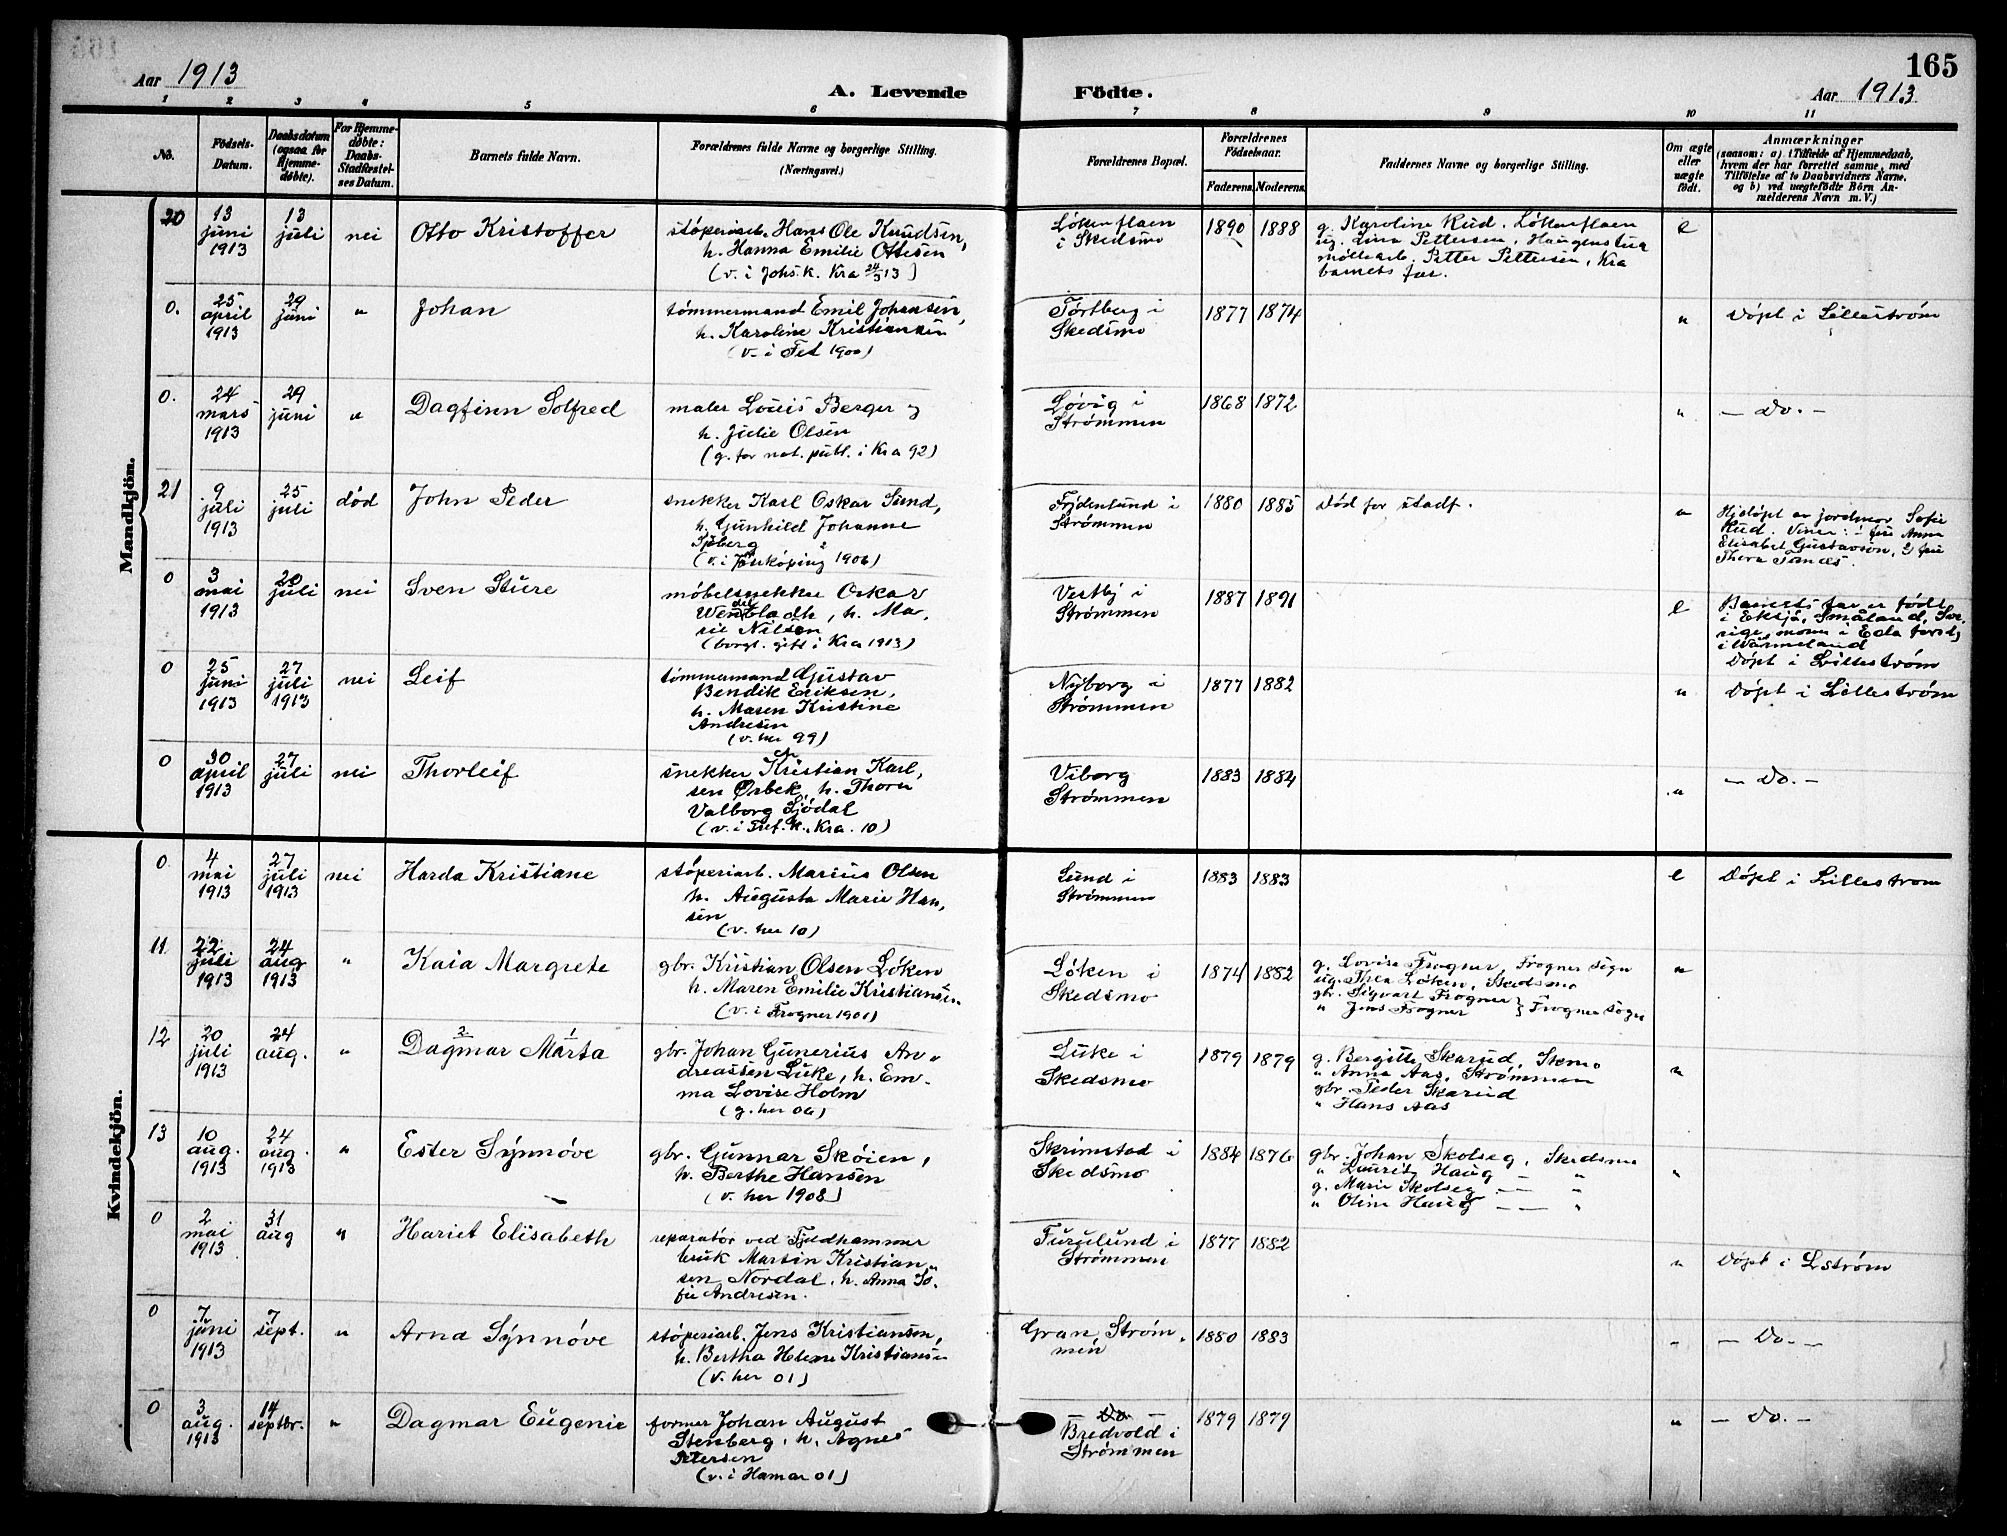 165
Aar 1913
A. Levende Födte.
Aar 1913
1 2 3 4 5 6 7 8 9 10 11
No.
Födsels-
Datum.
Daabsdatum
(ogsaa for
Hjemme-
døbte).
For Hjemme-
døbte:
Daabs-
Stadfæstel-
ses Datum.
Barnets fulde Navn.
Forældrenes fulde Navne og borgerlige Stilling.
(Næringsvei.)
Forældrenes Bopæl.
Forældrenes
Födselsaar.
Faderens. Moderens.
Faddernes Navne og borgerlige Stilling.
Om ægte
eller
uægte
födt.
Anmærkninger
(saasom: a) i Tilfælde af Hjemmedaab,
hvem der har forrettet samme, med
Tilföielse af to Daabsvidners Navne.
og b) ved uægtefödte Börn An-
melderens Navn m. V.)
Mandkjön.
20
13
juni
1913
13
juli
nei
Otto Kristoffer
støperiarb. Hans Ole Knudsen,
h. Hanna Emilie Ottesen
(v. i Johs. k. Kra 24/3 13)
Løkenflaen
i Skedsmo
1890 1888
g. Karoline Rud. Løkenflaen
ug. Lina Pettersen, Haugenstua
møllearb. Petter Pettersen, Kra
barnets far.
e
0.
25
april
1913
29
juni
"
Johan
tømmermand Emil Johansen,
h. Karoline Kristiansen
(v. i Fet 1900)
Tørtberg i
Skedsmo
1877 1874
"
Døpt i Lillestrøm
0.
24
mars
1913
29
juni
"
Dagfinn Solfred
maler Louis Berger og
h. Julie Olsen
(g. for not. publ. i Kra 92)
Løvig i
Strømmen
1868 1872
"
— Do. —
21
9
juli
1913
25
juli
død
John Peder
snekker Karl Oskar Sund,
h. Gunhild Johanne
(v. i Jönköping 1906)
Frydenlund i
Strømmen
1880 1885
død før stadf.
"
Hjdøpt av jordmor Sofie
Rud. Vitner: 1 fru Anna
Elisabet Gustavson, 2 fru
Thora
0
3
mai
1913
20
juli
nei
Sven Sture
møbelsnekker Oskar
Wendelbladh, h. Ma-
rie Nilsen
(borgl. gift i Kra 1913)
Vestby i
Strømmen
1887 1891
e
Barnets far er født
i Eksjö, Småland, Sve-
rige, mom i Eda forsl,
i Wärmeland
Døpt i Lillestrøm
0
25
juni
1913
27
juli
1913
nei
Leif
tømmermand Gustav
Bendik Eriksen,
h. Maren Kristine
Andresen
(v. her 99)
Nyborg i
Strømmen
1877 1882
"
Døpt i Lillestrøm
0
30
april
1913
27
juli
nei
Thorleif
snekker Kristian Karl-
sen Ørbek, h. Thora
Valborg Sjødal
(v. i Tref. k. Kra. 10)
Viborg
Strømmen
1883 1884
"
— Do. —
Kvindekjön.
0
4
mai
1913
27
juli
1913
nei
Harda Kristiane
støperiarb. Marius Olsen
h. Augusta Marie Han,
sen
(v. her 10)
Lund i
Strømmen
1883 1883
e
Døpt i Lillestrom
11
22
juli
1913
24
aug
1913
"
Kaia Margrete
gbr. Kristian Olsen Løken
h. Maren Emilie Kristiansen
(v. i Frogner 1901)
Løken i
Skedsmo
1874 1882
g. Lovise Frogner, Frogner sogn
ug. Thea Løken, Skedsmo
gbr. Sigvart Frogner
" Jens Frogner } Frogner sogn
"
12
20
juli
1913
24
aug.
"
2 1
Dagmar Marta
gbr. Johan Gunerius An-
dreassen Luke, h. Em-
ma Lovise Holm
(g. her 06)
Luke i
Skedsmo
1879 1879
g. Bergitte Skarud, Skmo
" Anna Aas, Strømmen
gbr. Peder Skarud
" Hans Aas
"
13
10
aug.
1913
24
aug
1913
"
Ester Synnöve
gbr. Gunnar Skøien,
h. Berthe Hansen
(v. her 1908)
Skrimstad i
Skedsmo
1884 1876
gbr. Johan Skolseg, Skedsmo
" Laurits Haug "
g. Marie Skolseg — "
" Oline Haug — "
"
0
2
mai
1913
31
aug
"
Hariet Elisabeth
reparatør ved Fjeldhammer
bruk Martin Kristian-
sen Nordal, h. Anna So-
fie Andresen.
Furulund i
Strømmen
1877 1882
"
Døpt i Lstrøm
0
7
juni
1913
7
sept.
"
Arna Synnöve
støperiarb. Jens Kristiansen,
h. Bertha Helene Kristiansen
(v. her 01)
Gran, Strøm-
men
1880 1883
"
— Do. —
0
3
aug.
1913
14
septbr.
"
Dagmar Eugenie
former Johan August
Stenberg, h. Agnes
Petersen
(v. i Hamar 01)
Do.
Bredvold i
Strømmen
1879 1879
"
— Do. —